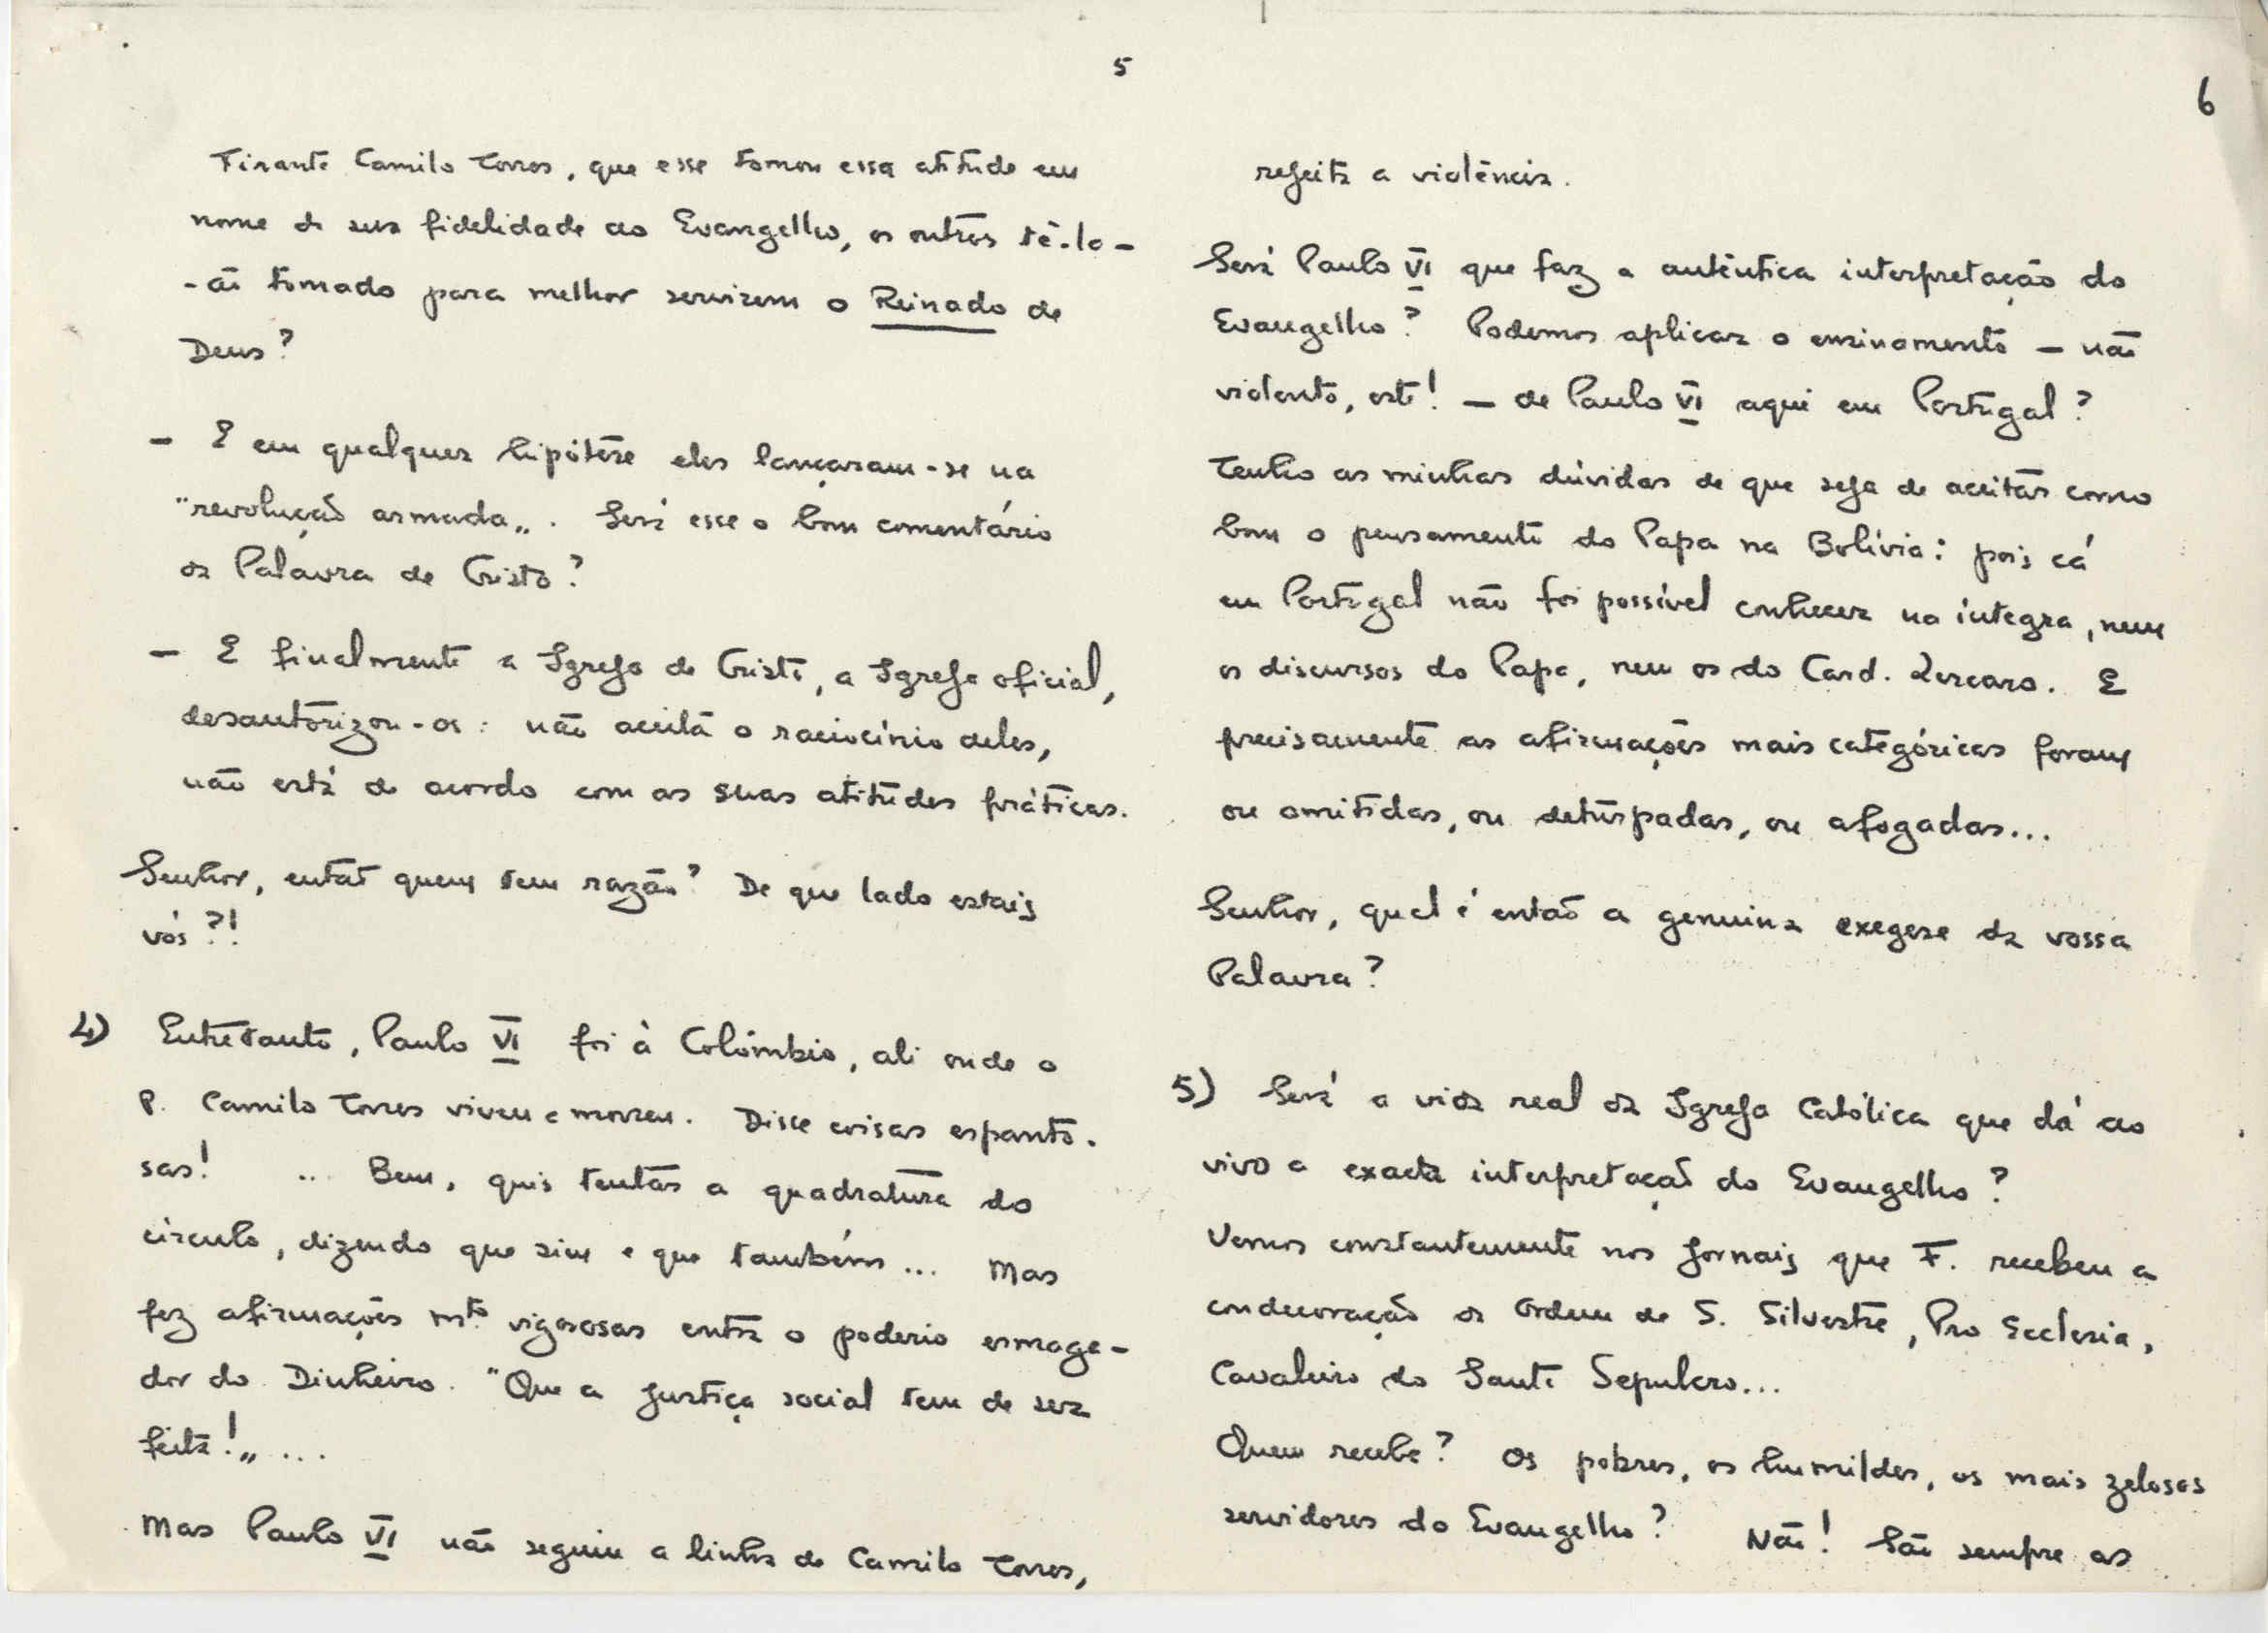 5
Tirante Camilo Torres, que esse tomou essa atitude em
nome de sua fidelidade ao Evangelho, os outros tê-lo-
-ão tomado para melhor servirem o Reinado de
Deus?
- E em qualquer hipótese eles lançaram-se na
"revolução armada„. Será esse o bom comentário
da Palavra de Cristo?
- E finalmente a Igreja de Cristo, a Igreja oficial,
desautorizou-os: não aceita o raciocínio deles,
não está de acordo com as suas atitudes práticas.
Senhor, então quem tem razão? De que lado estais
vós?!
4) Entretanto, Paulo VI foi à Colômbia, ali onde o
P. Camilo Torres viveu e morreu. Disse coisas espanto-
sas! ... Bem, quis tentar a quadratura do
círculo, dizendo que sim e que também... Mas
fez afirmações mto. vigorosas contra o poderio esmaga-
dor do Dinheiro. "Que a justiça social tem de ser
feita!„...
Mas Paulo VI não seguiu a linha de Camilo Torres,
6
rejeita a violência.
Será Paulo VI que faz a autêntica interpretação do
Evangelho? Podemos aplicar o ensinamento - não
violento, este! - de Paulo VI aqui em Portugal?
Tenho as minhas dúvidas de que seja de aceitar como
bom o pensamento do Papa na Bolívia: pois cá
em Portugal não foi possível conhecer na íntegra, nem
os discursos do Papa, nem os do Card. Lercaro. E
precisamente as afirmações mais categóricas foram
ou omitidas, ou deturpadas, ou afogadas...
Senhor, qual é então a genuina exegese da vossa
Palavra?
5) Será a vida real da Igreja Católica que dá ao
vivo a exacta interpretação do Evangelho?
Vemos constantemente nos jornais que F. recebeu a
condecoração da Ordem de S. Silvestre, Pro Ecclesia,
Cavaleiro do Santo Sepulcro...
Quem recebe? Os pobres, os humildes, os mais zelosos
servidores do Evangelho? Não! São sempre os